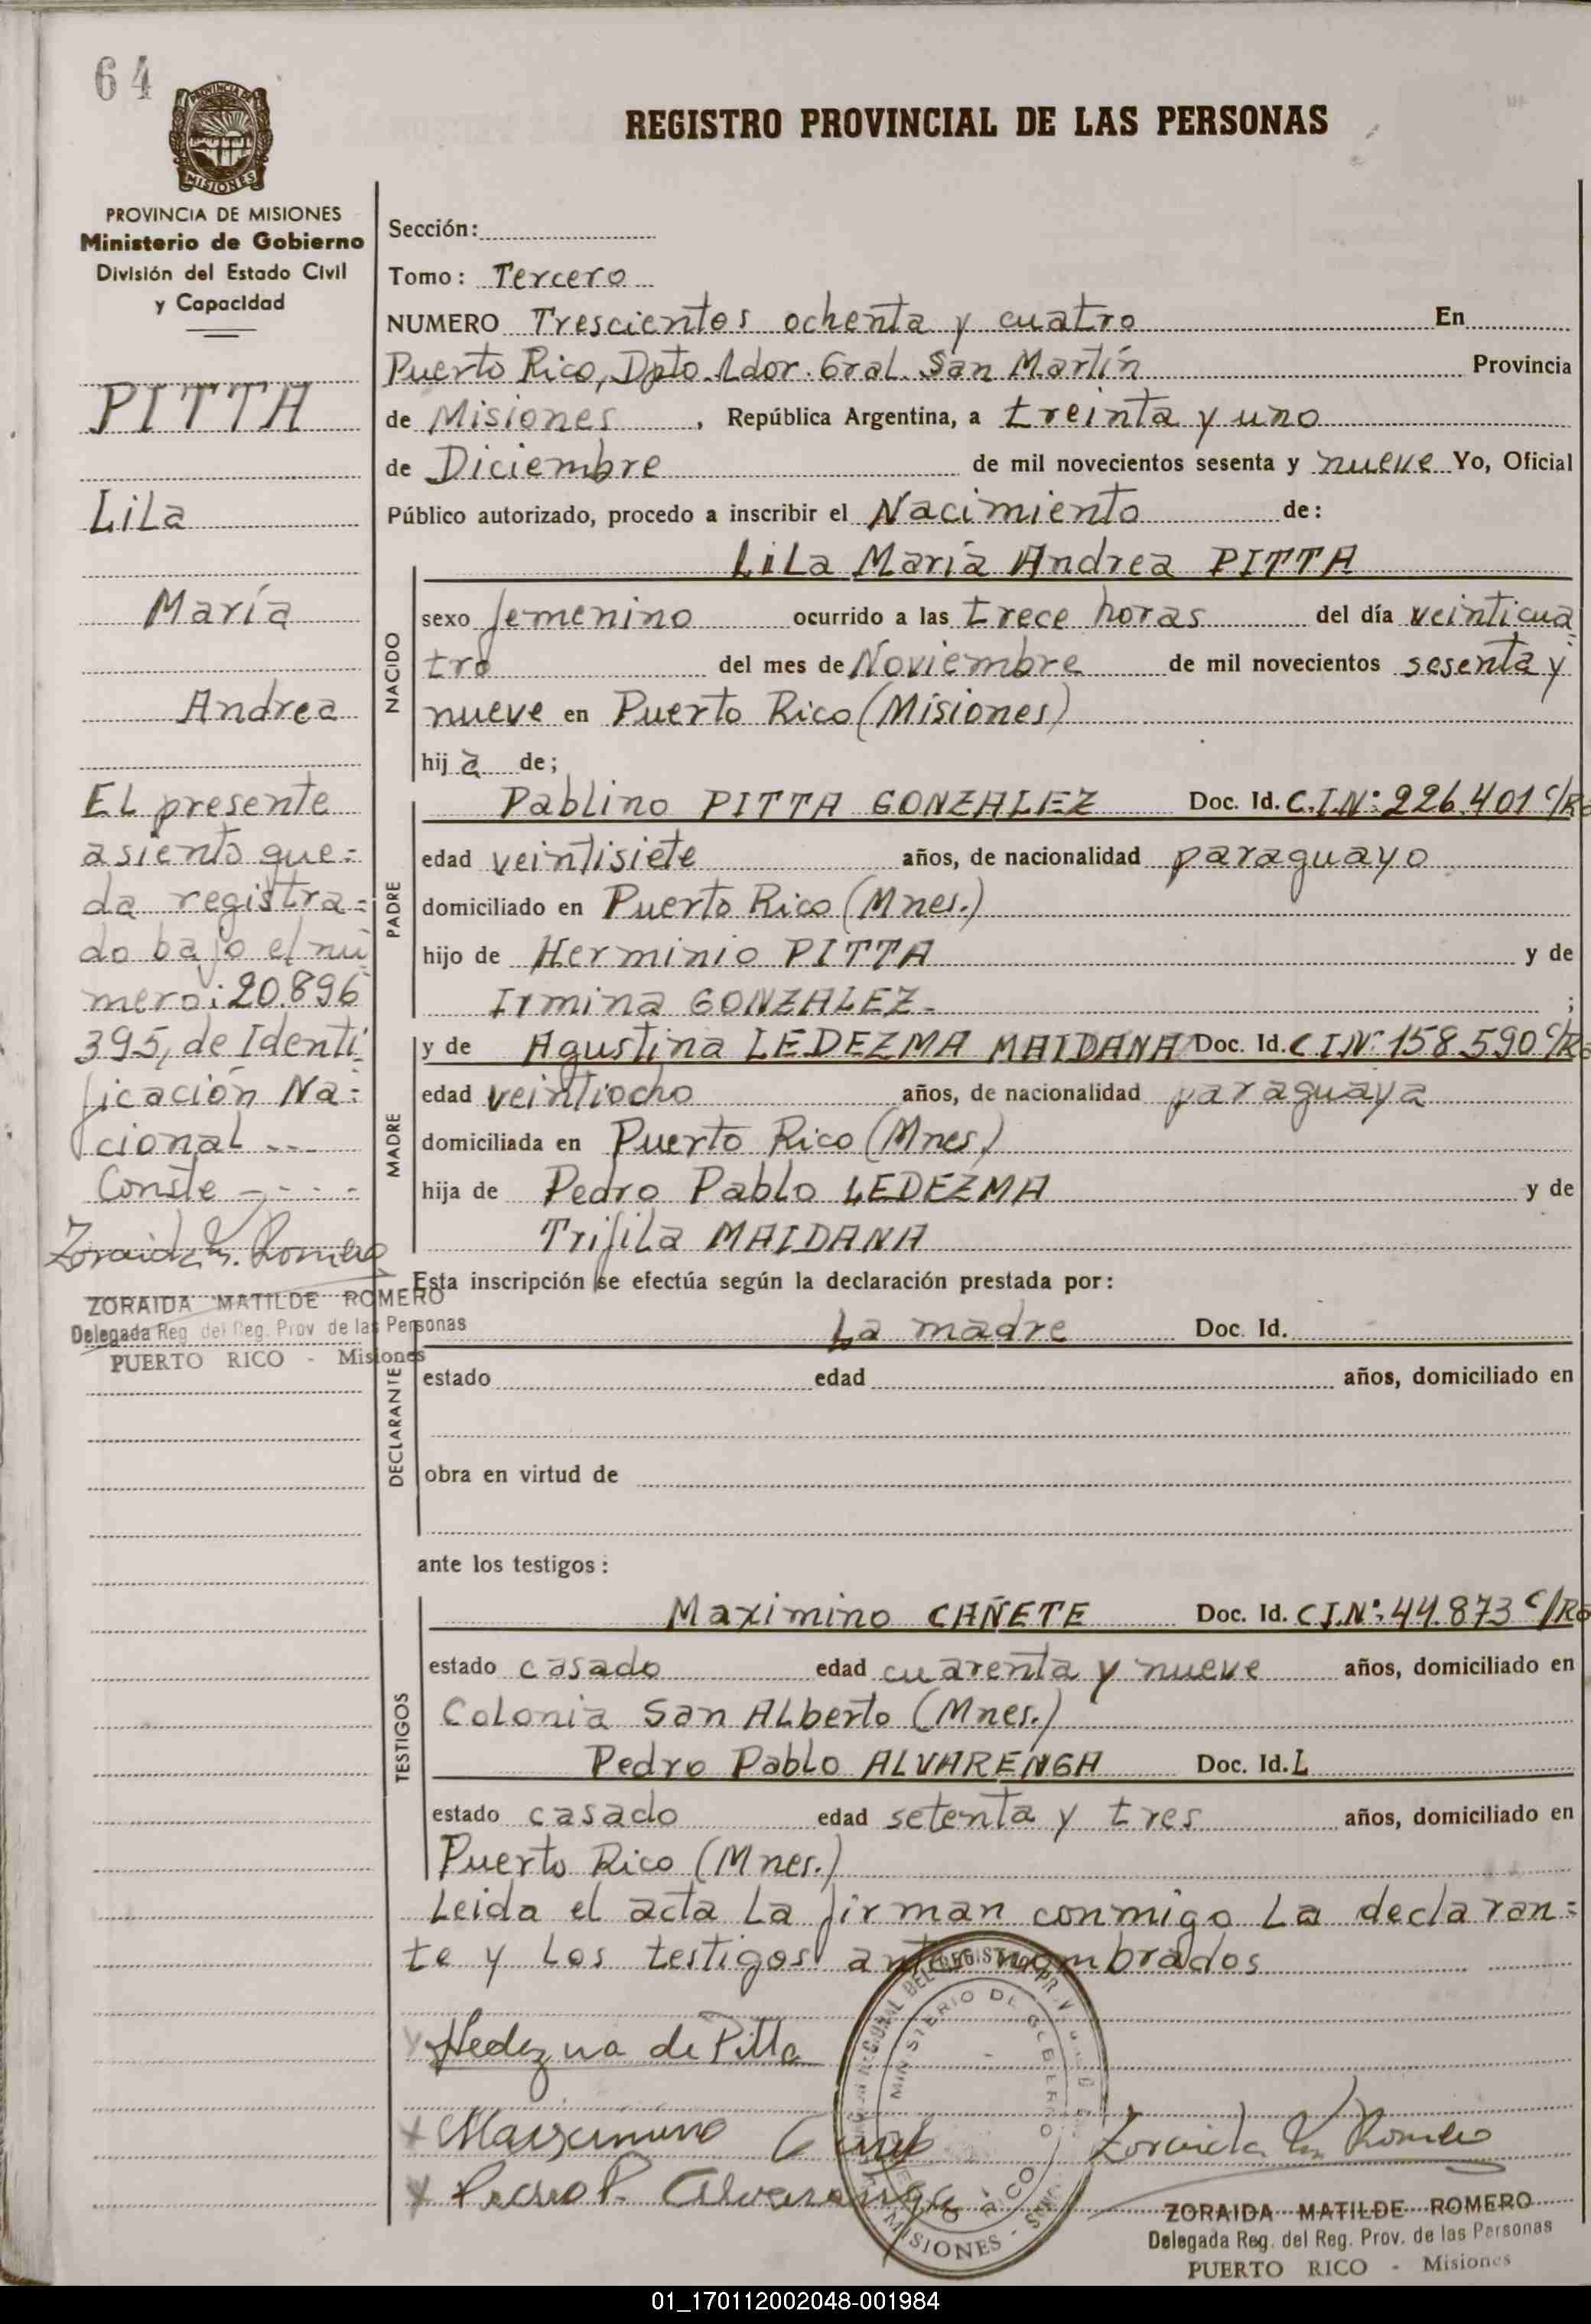 64
REGISTRO PROVINCIAL DE LAS PERSONAS
PROVINCIA DE MISIONES
MISIONES
PROVINCIA DE MISIONES
Ministerio de Gobierno
División del Estado Civil
y Capacidad
PITTA
Lila
María
Andrea
El presente
asiento que=
da registra=
do bajo el nú
mero: 20.896
395, de Identi=
ficación Na=
cional ---
Conste -,- - -
Zoraida M. Romero
ZORAIDA MATILDE ROMERO
Delegada Reg. del Reg. Prov. de las Personas
PUERTO RICO - Misiones
Sección:
Tomo: Tercero
NUMERO Trescientos ochenta y cuatro En
Puerto Rico, Dpto. Ldor. Gral. San Martín Provincia
de Misiones, República Argentina, a treinta y uno
de Diciembre de mil novecientos sesenta y nueve Yo, Oficial
Público autorizado, procedo a inscribir el Nacimiento de:
Lila María Andrea PITTA
NACIDO
sexo femenino ocurrido a las trece horas del día veinticua=
tro del mes de Noviembre de mil novecientos sesenta y
nueve en Puerto Rico (Misiones)
hij a de;
PADRE
Pablino PITTA GONZALEZ Doc. Id. C.I.Nº: 226.401 C/Ro
edad veintisiete años, de nacionalidad paraguayo
domiciliado en Puerto Rico (Mnes.)
hijo de Herminio PITTA y de
Irmina GONZALEZ- ;
MADRE
y de Agustina LEDEZMA MAIDANA Doc. Id. C I Nº: 158.590 C/Ro
edad veintiocho años, de nacionalidad paraguaya
domiciliada en Puerto Rico (Mnes)
hija de Pedro Pablo LEDEZMA y de
Trifila MAIDANA
Esta inscripción se efectúa según la declaración prestada por:
DECLARANTE
La madre Doc. Id.
estado edad años, domiciliado en
obra en virtud de
ante los testigos:
TESTIGOS
Maximino CAÑETE Doc. Id. C I.Nº: 44.873 C/Ro
estado casado edad cuarenta y nueve años, domiciliado en
Colonia San Alberto (Mnes.)
Pedro Pablo ALVARENGA Doc. Id. L
estado casado edad setenta y tres años, domiciliado en
Puerto Rico (Mnes.)
Leida el acta la firman conmigo la declaran=
te y los testigos antes nombrados
Ledezma de Pitta
MINISTERIO DE GOBIERNO
MISIONES
x Maximino
x Pedro P. Alvarenga
Zoraida M. Romero
ZORAIDA MATILDE ROMERO
Delegada Reg. del Reg. Prov. de las Personas
PUERTO RICO - Misiones
01_170112002048-001984